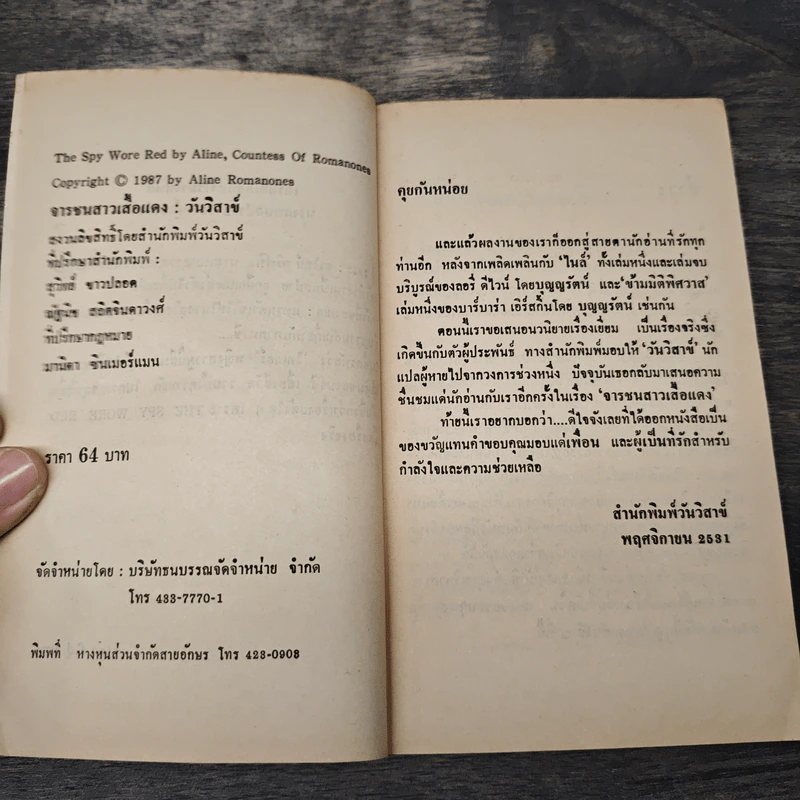 The Spy Wore Red by Aline, Countess Of Romanones
Copyright © 1987 by Aline Romanones
จารชนสาวเสื้อแดง : วันวิสาข์
สงวนลิขสิทธิ์โดยสำนักพิมพ์วันวิสาข์
ที่ปรึกษาสำนักพิมพ์ :
สุวิทย์ ขาวปลอด
ณัฐนิช สถิตจินดาวงศ์
ที่ปรึกษากฎหมาย
มานิดา ซินเมอร์แมน
ราคา 64 บาท
จัดจำหน่ายโดย : บริษัทธนบรรณจัดจำหน่าย จำกัด
โทร 433-7770-1
พิมพ์ที่ ห้างหุ้นส่วนจำกัดสายอักษร โทร 423-0908
คุยกันหน่อย
และแล้วผลงานของเราก็ออกสู่สายตานักอ่านที่รักทุก
ท่านอีก หลังจากเพลิดเพลินกับ ‘ไนล์’ ทั้งเล่มหนึ่งและเล่มจบ
บริบูรณ์ของลอรี่ ดีไวน์ โดยบุญญรัตน์ และ‘ข้ามมิติพิศวาส’
เล่มหนึ่งของบาร์บาร่า เอิร์สกินโดย บุญญรัตน์ เช่นกัน
ตอนนี้เราขอเสนอนวนิยายเรื่องเยี่ยม เป็นเรื่องจริงซึ่ง
เกิดขึ้นกับตัวผู้ประพันธ์ ทางสำนักพิมพ์มอบให้ ‘วันวิสาข์’ นัก
แปลผู้หายไปจากวงการช่วงหนึ่ง ปัจจุบันเธอกลับมาเสนอความ
ชื่นชมแด่นักอ่านกับเราอีกครั้งในเรื่อง ‘จารชนสาวเสื้อแดง’
ท้ายนี้เราอยากบอกว่า....ดีใจจังเลยที่ได้ออกหนังสือเป็น
ของขวัญแทนคำขอบคุณมอบแด่เพื่อน และผู้เป็นที่รักสำหรับ
กำลังใจและความช่วยเหลือ
สำนักพิมพ์วันวิสาข์
พฤศจิกายน 2531